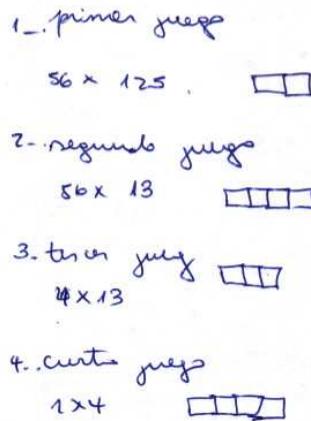 1_. primer juego
56 x 125.
2-. segundo juego
56 x 13
3. tercer jueg
4 x 13
4.. cuarto juego
1 x 4